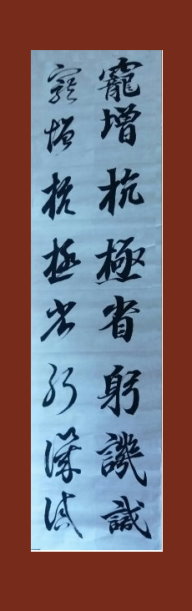 寵增抗極省躬譏誡
寵增抗極省躬譏誡